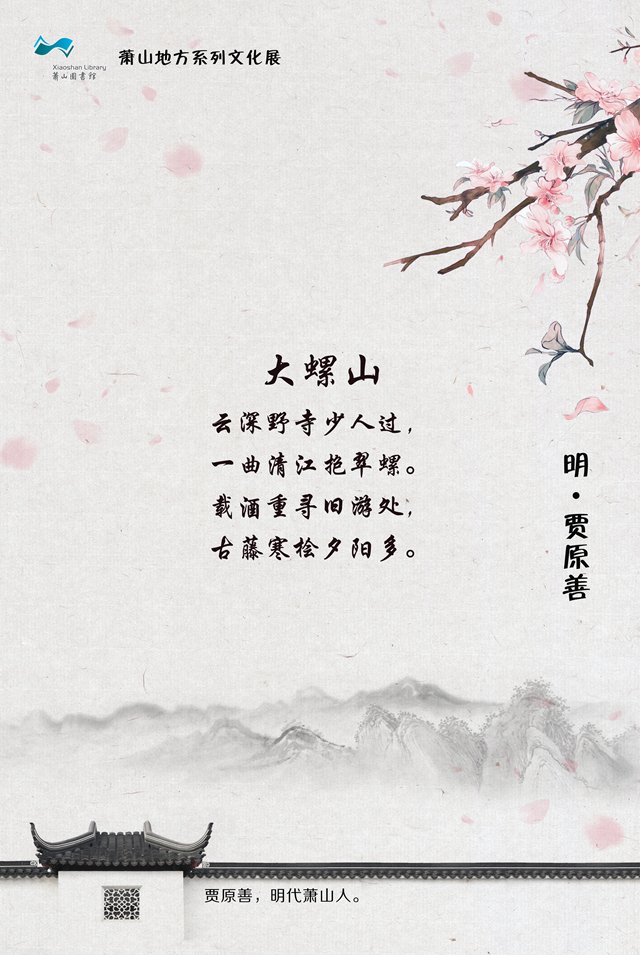 Xiaoshan Library
萧山图书馆
萧山地方系列文化展
大螺山
云深野寺少人过，
一曲清江抱翠螺。
载酒重寻旧游处，
古藤寒桧夕阳多。
明·贾原善
贾原善，明代萧山人。